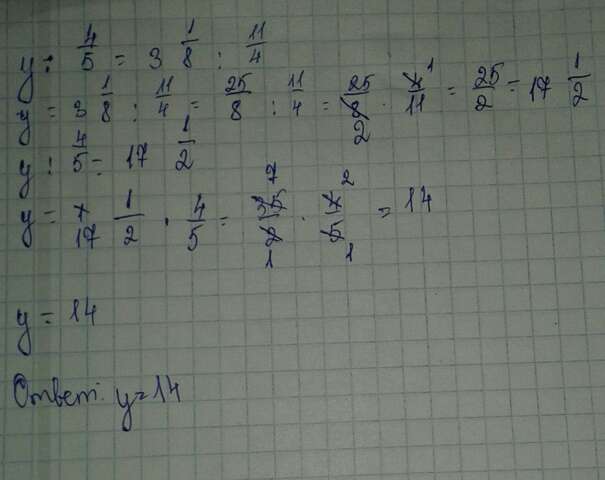 y : 4/5 = 3 1/8 : 11/4
y = 3 1/8 : 11/4 = 25/8 : 11/4 = 25/8 2 · 4/11 1 = 25/2 = 17 1/2
y : 4/5 = 17 1/2
y = 17 1/2 · 4/5 = 35/2 7 1 · 4/5 2 1 = 14
y = 14
Ответ: y = 14